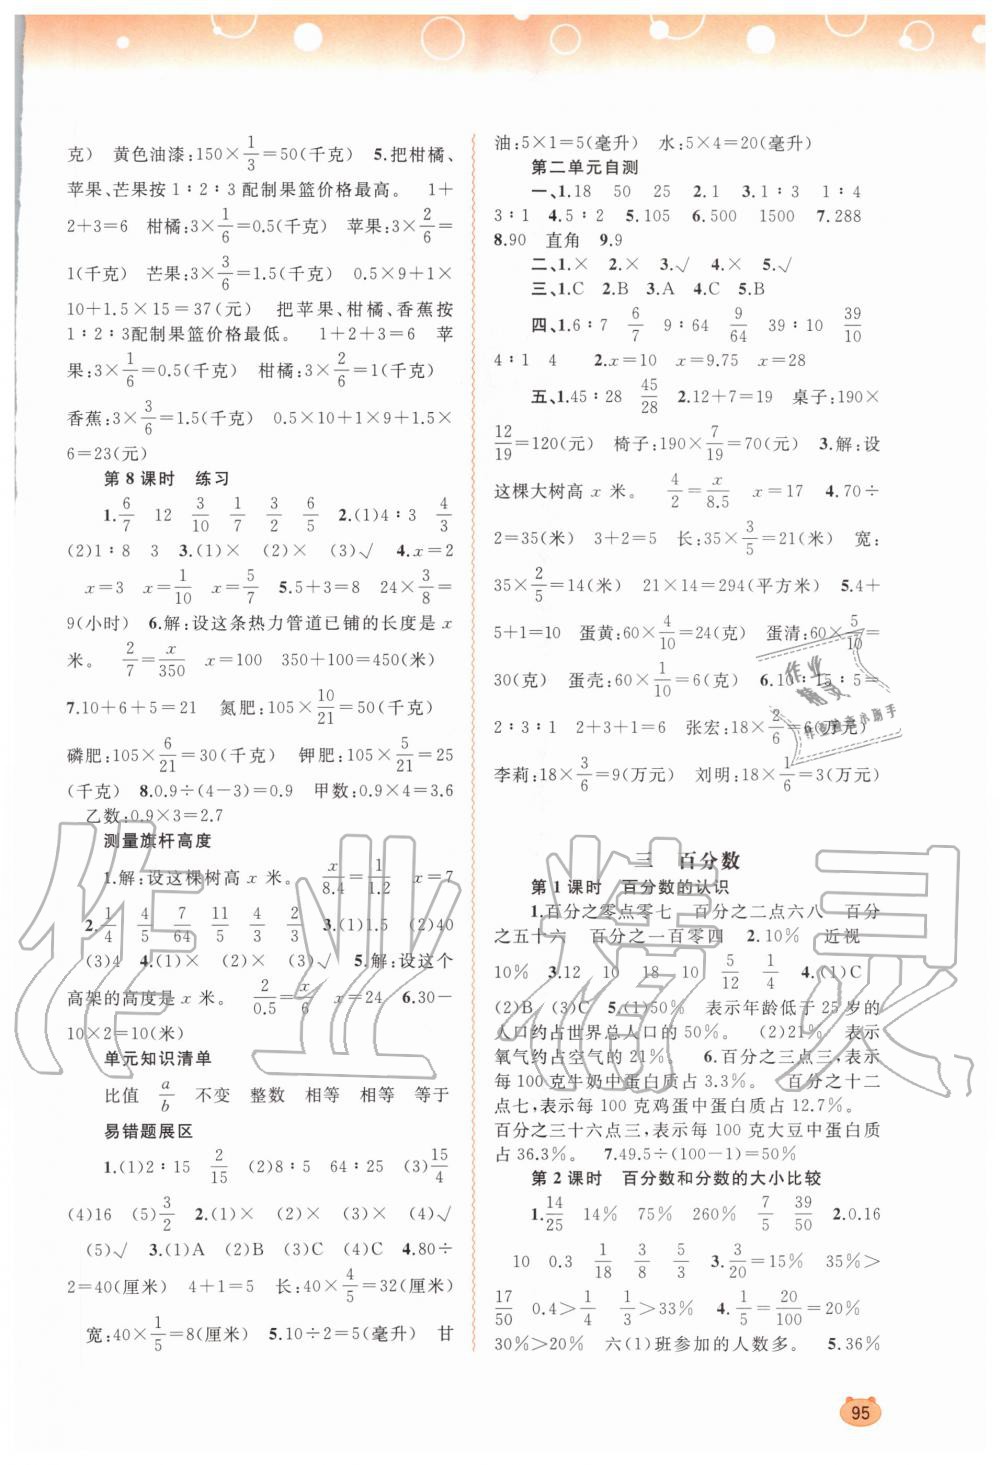 克) 黄色油漆:150×1/3=50(千克) 5.把柑橘、
苹果、芒果按1∶2∶3配制果篮价格最高。 1+
2+3=6 柑橘:3×1/6=0.5(千克) 苹果:3×2/6=
1(千克) 芒果:3×3/6=1.5(千克) 0.5×9+1×
10+1.5×15=37(元) 把苹果、柑橘、香蕉按
1∶2∶3配制果篮价格最低。 1+2+3=6 苹
果:3×1/6=0.5(千克) 柑橘:3×2/6=1(千克)
香蕉:3×3/6=1.5(千克) 0.5×10+1×9+1.5×
6=23(元)
第8课时 练习
1.6/7 12 3/10 1/7 3/2 6/5 2.(1)4∶3 4/3
(2)1∶8 3 3.(1)× (2)× (3)√ 4.x=2
x=3 x=1/10 x=5/7 5.5+3=8 24×3/8=
9(小时) 6.解:设这条热力管道已铺的长度是x
米。 2/7=x/350 x=100 350+100=450(米)
7.10+6+5=21 氮肥:105×10/21=50(千克)
磷肥:105×6/21=30(千克) 钾肥:105×5/21=25
(千克) 8.0.9÷(4-3)=0.9 甲数:0.9×4=3.6
乙数:0.9×3=2.7
测量旗杆高度
1.解:设这棵树高x米。 x/8.4=1/1.2 x=7
2.1/4 4/5 7/64 11/5 4/3 2/3 3.(1)1.5 (2)40
(3)4 4.(1)× (2)× (3)√ 5.解:设这个
高架的高度是x米。 2/0.5=x/6 x=24 6.30-
10×2=10(米)
单元知识清单
比值 a/b 不变 整数 相等 相等 等于
易错题展区
1.(1)2∶15 2/15 (2)8∶5 64∶25 (3)15/4
(4)16 (5)3/2 2.(1)× (2)× (3)× (4)√
(5)√ 3.(1)A (2)B (3)C (4)C 4.80÷
2=40(厘米) 4+1=5 长:40×4/5=32(厘米)
宽:40×1/5=8(厘米) 5.10÷2=5(毫升) 甘
油:5×1=5(毫升) 水:5×4=20(毫升)
第二单元自测
一、1.18 50 25 2.1 3.1∶3 1∶4
3∶1 4.5∶2 5.105 6.500 1500 7.288
8.90 直角 9.9
二、1.× 2.× 3.√ 4.× 5.√
三、1.C 2.B 3.A 4.C 5.B
四、1.6∶7 6/7 9∶64 9/64 39∶10 39/10
4∶1 4 2.x=10 x=9.75 x=28
五、1.45∶28 45/28 2.12+7=19 桌子:190×
12/19=120(元) 椅子:190×7/19=70(元) 3.解:设
这棵大树高x米。 4/2=x/8.5 x=17 4.70÷
2=35(米) 3+2=5 长:35×3/5=21(米) 宽:
35×2/5=14(米) 21×14=294(平方米) 5.4+
5+1=10 蛋黄:60×4/10=24(克) 蛋清:60×5/10=
30(克) 蛋壳:60×1/10=6(克) 6.10∶15∶5=
2∶3∶1 2+3+1=6 张宏:18×2/6=6(万元)
李莉:18×3/6=9(万元) 刘明:18×1/6=3(万元)
三 百分数
第1课时 百分数的认识
1.百分之零点零七 百分之二点六八 百分
之五十六 百分之一百零四 2.10% 近视
10% 3.12 10 18 10 5/12 1/4 4.(1)C
(2)B (3)C 5.(1)50% 表示年龄低于25岁的
人口约占世界总人口的50%。 (2)21% 表示
氧气约占空气的21%。 6.百分之三点三,表示
每100克牛奶中蛋白质占3.3%。 百分之十二
点七,表示每100克鸡蛋中蛋白质占12.7%。
百分之三十六点三,表示每100克大豆中蛋白质
占36.3%。 7.49.5÷(100-1)=50%
第2课时 百分数和分数的大小比较
1.14/25 14% 75% 260% 7/5 39/50 2.0.16
10 0.3 1/18 3/8 5/3 3.3/20=15% 35%>
17/50 0.4>1/4 1/3>33% 4.1/5=20/100=20%
30%>20% 六(1)班参加的人数多。 5.36%
95
作业精灵
作业精灵